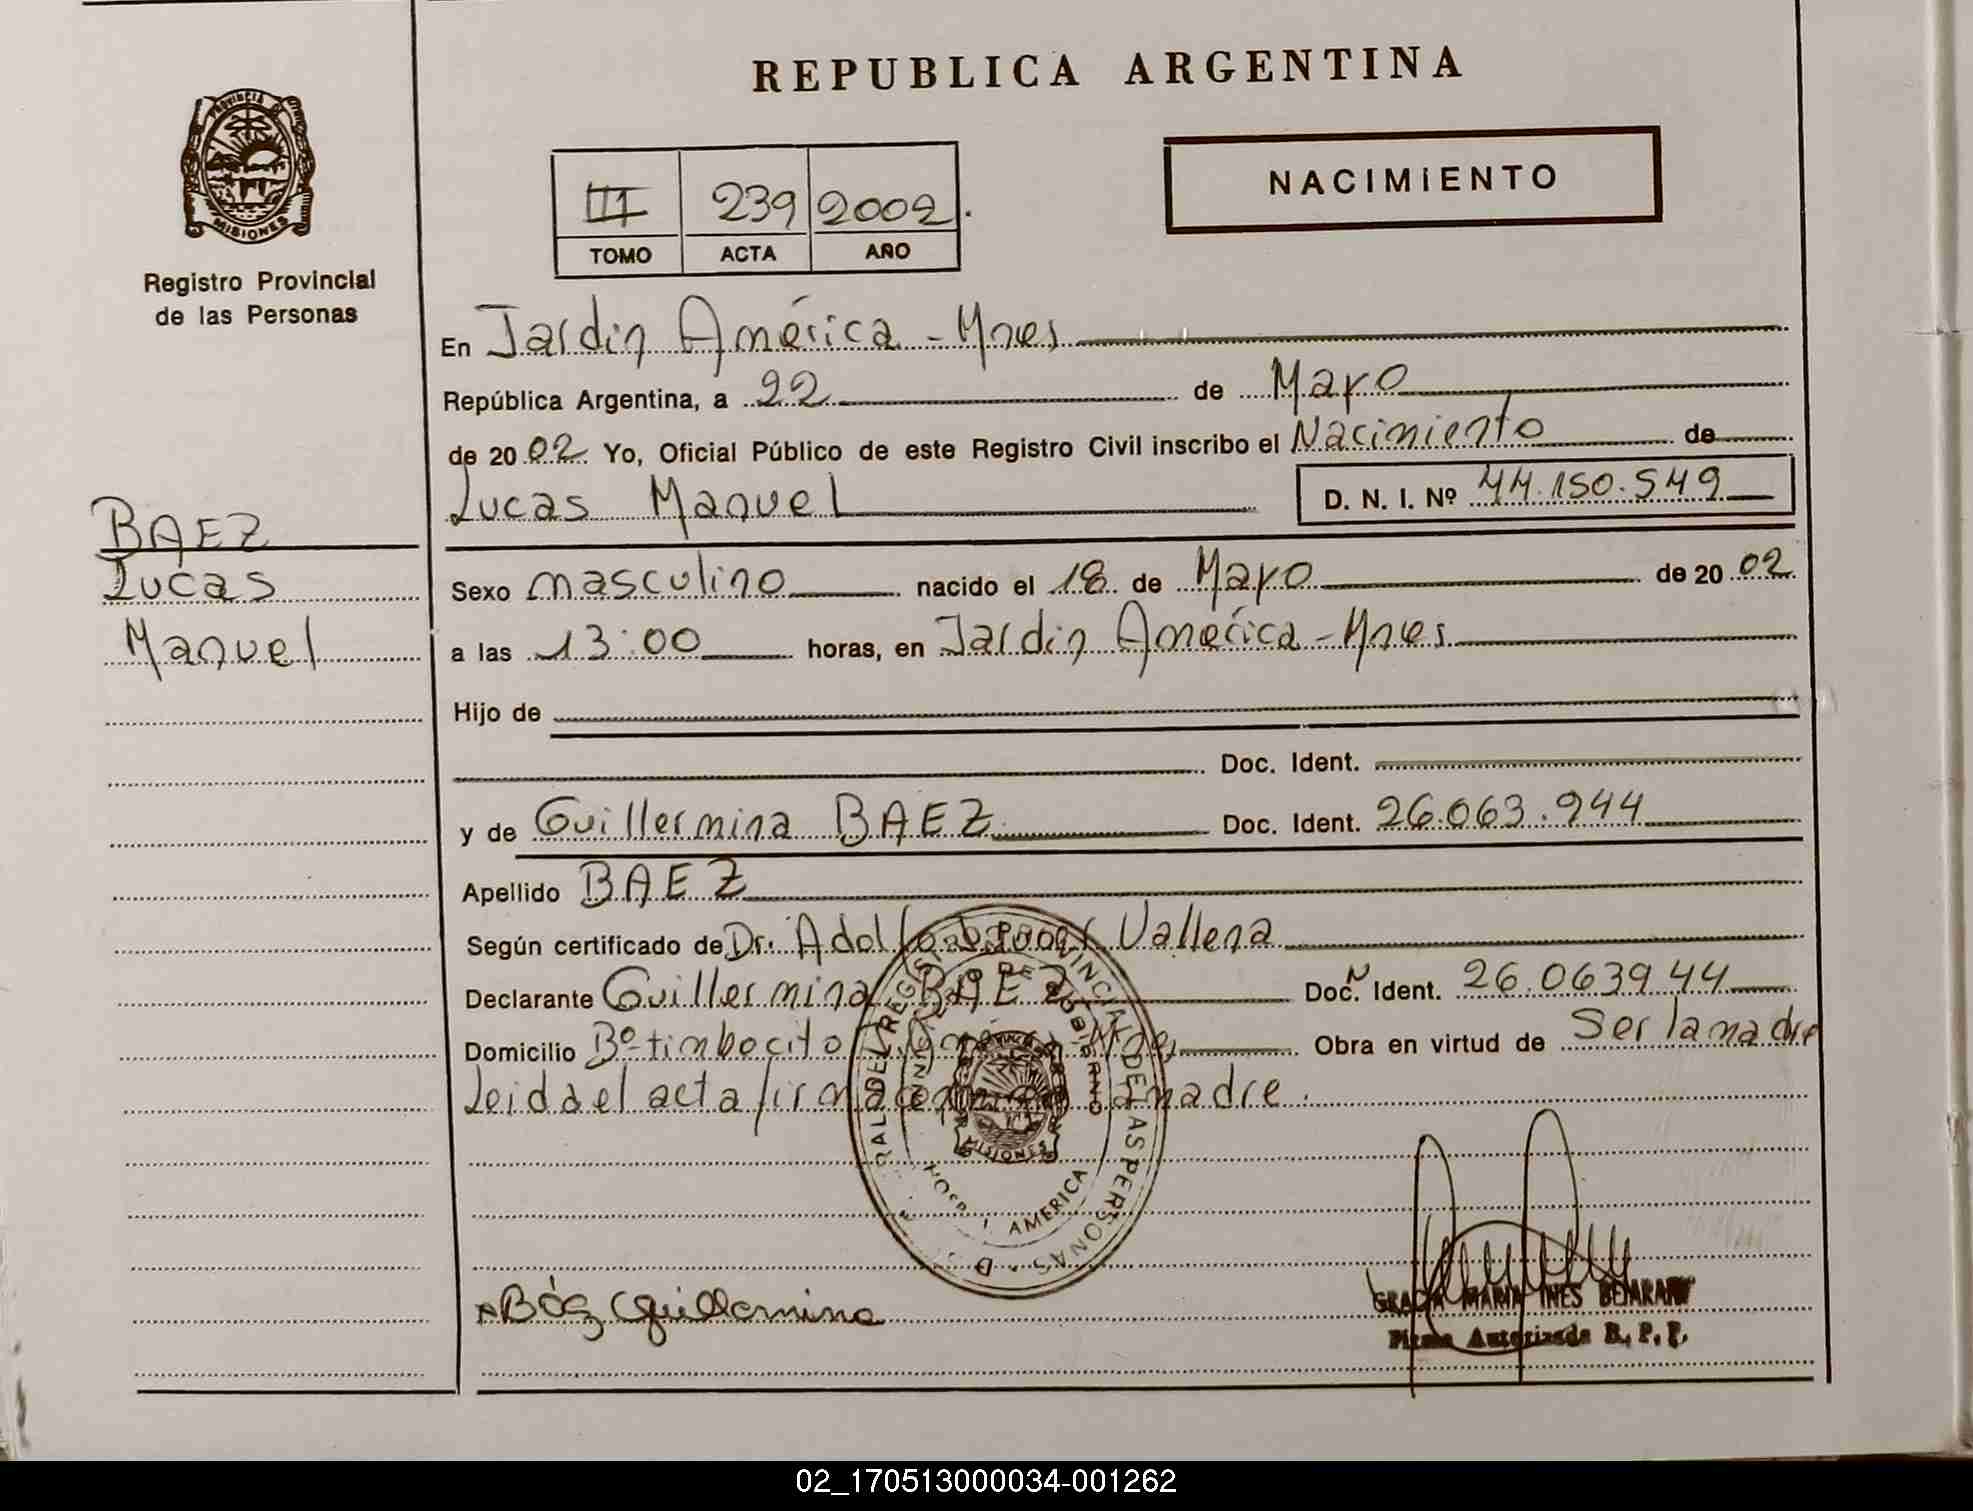 REPUBLICA ARGENTINA
PROVINCIA DE
MISIONES
Registro Provincial
de las Personas
III 239 2002.
TOMO ACTA AÑO
NACIMIENTO
En Jardin América - Mnes
República Argentina, a 22 de Mayo
de 2002 Yo, Oficial Público de este Registro Civil inscribo el Nacimiento de
Lucas Manuel D. N. I. Nº 44.150.549
BAEZ
Lucas
Manuel
Sexo masculino nacido el 18 de Mayo de 2002
a las 13:00 horas, en Jardin América - Mnes
Hijo de
Doc. Ident.
y de Guillermina BAEZ Doc. Ident. 26.063.944
Apellido BAEZ
Según certificado de Dr. Adolfo Vallena
Declarante Guillermina BAEZ Doc. Ident. 26.063944
Domicilio Bº timbocito Obra en virtud de Ser la madre
Leida el acta firma madre.
REGISTRO PROVINCIAL DE LAS PERSONAS
MISIONES
AMERICA
Báez Guillermina
MARIA INES BEJARANO
Firma Autorizada R. P. P.
02_170513000034-001262